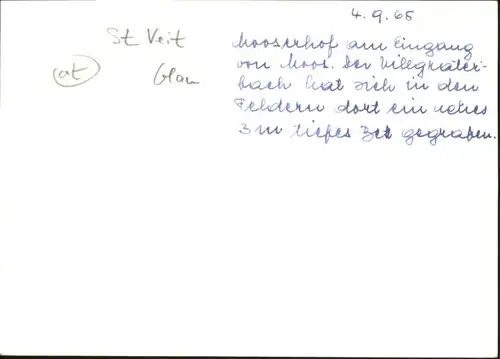 4.9.65
St Veit
at
Glan
Mooserhof am Eingang
von Moos. Der Villgrater-
bach hat sich in den
Feldern dort ein neues
3 m tiefes Bett gegraben.